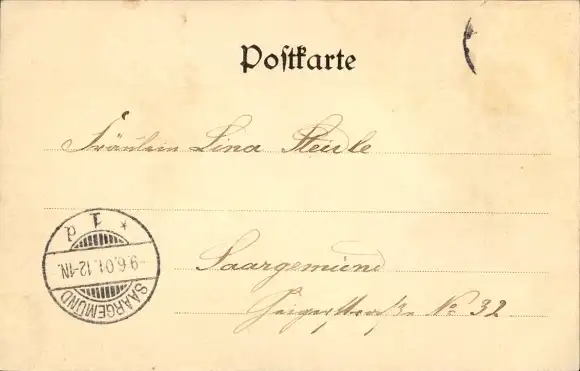 Postkarte
Fräulein Lina
Saargemünd
No 32
* 1 d
-9.6.01.12-1N.
SAARGEMÜND